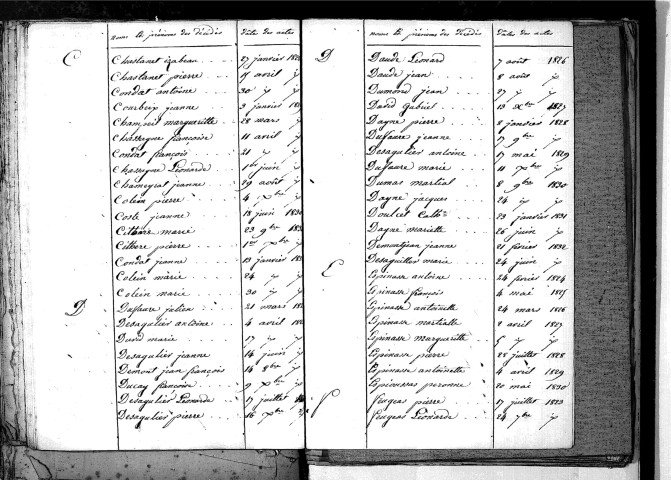 noms et prénoms des décédés dates des actes
C Chastanet izabeau 27 janvier
Chastanet pierre 15 avril
Condat antoine 30
Courbeix jeanne 3 janvier
margueritte 28 mars
Chassagne françoise 11 avril
Condat françois 21
Chassagne Léonarde 1er juin
Chameyrat jeanne 29 août
Colein pierre 4 Xbre
Coste jeanne 18 juin
Cithere marie 23 9bre
Cithere pierre 1er Xbre
Condat jeanne 13 janvier
Colein marie 24
Colein marie 30
D Dufaure julien 21 mars
Desagulier antoine 4 avril
David marie 17
Desagulier jeanne 14 juin
Demont jean françois 14 8bre
Ducay françoise 9 Xbre
Desagulier Léonarde 17 juillet
Desagulier pierre 16 Xbre
noms et prénoms des décédés dates des actes
D Daude Léonard 7 août 1826
Daude jean 8 août
Dumond jean 27
David gabriel 13 Xbre 1827
Dayne pierre 2 janvier 1828
Dufaure jeanne 7 9bre
Desagulier antoine 17 mai 1829
Dufaure marie 11 Xbre
Dumas martial 8 9bre 1830
Dayne jacques 24
Doulcet Cathne 23 janvier 1831
Dayne mariette 26 juin
Demontjean jeanne 21 février 1832
Desaguiller marie 24 juin
E Espinasse antoine 24 février 1824
Espinasse françois 4 mai 1825
Espinasse antoinette 24 mars 1826
Espinasse martialle 2 avril 1827
Espinasse margueritte 5
Espinasse pierre 25 juillet 1828
Espinasse antoinette 4 avril 1829
peronne 20 mai 1830
F Feugeas pierre 17 juillet 1823
Feugeas Léonarde 24 7bre